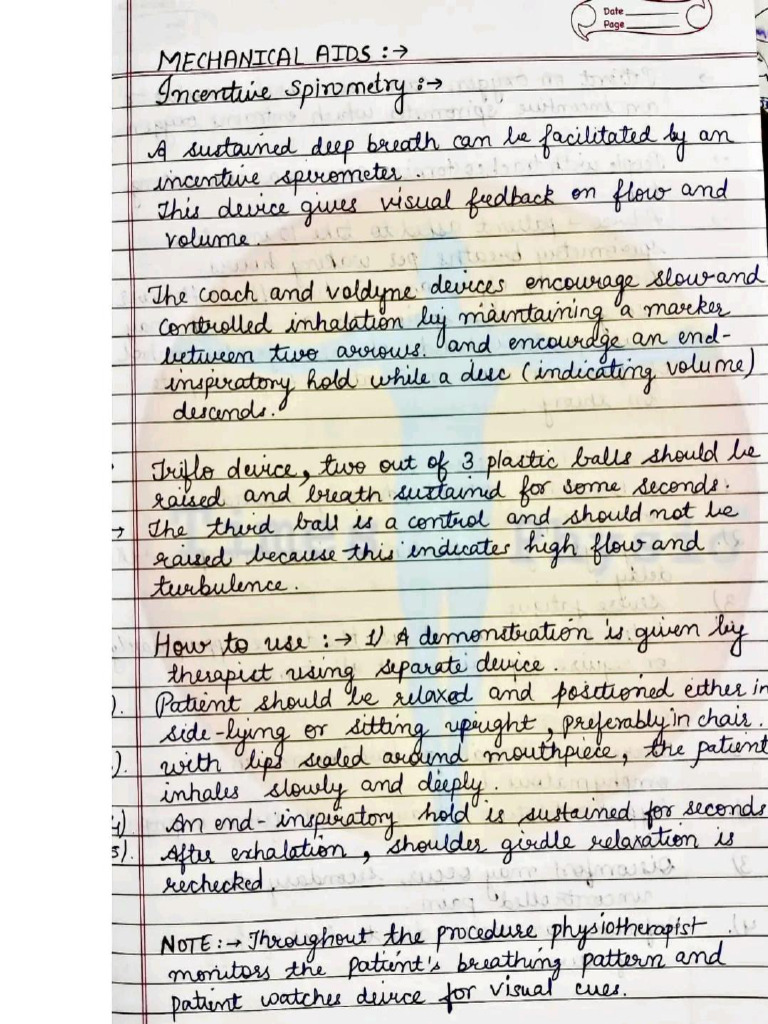 Date
Page
MECHANICAL AIDS :→
Incentive Spirometry :→
A sustained deep breath can be facilitated by an
incentive spirometer.
This device gives visual feedback on flow and
volume.
The coach and voldyne devices encourage slow and
controlled inhalation by maintaining a marker
between two arrows. and encourage an end-
inspiratory hold while a desc (indicating volume)
descends.
Triflo device, two out of 3 plastic balls should be
raised and breath sustained for some seconds.
→ The third ball is a control and should not be
raised because this indicates high flow and
turbulence.
How to use :→ 1) A demonstration is given by
therapist using separate device.
). Patient should be relaxed and positioned either in
side-lying or sitting upright, preferably in chair.
). with lips sealed around mouthpiece, the patient
inhales slowly and deeply.
4) An end-inspiratory hold is sustained for seconds
5). After exhalation, shoulder girdle relaxation is
rechecked.
NOTE :→ Throughout the procedure physiotherapist
monitors the patient's breathing pattern and
patient watches device for visual cues.